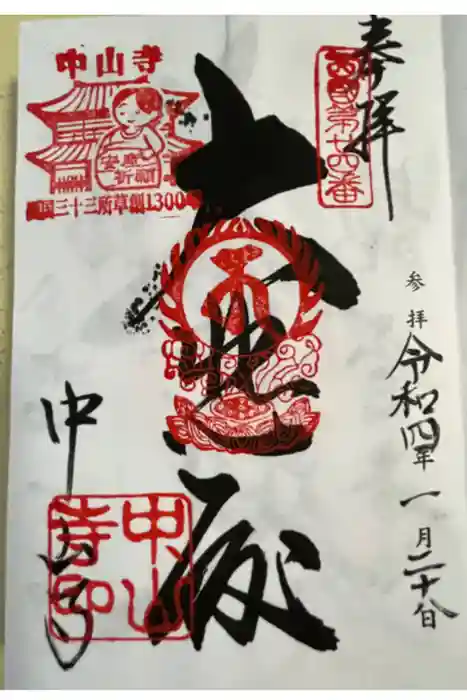 奉拝
西國第廿四番
参拝 令和四年 一月二十日
大悲殿
中山寺
安産
祈願
国三十三所草創1300
中山寺
中山
寺印